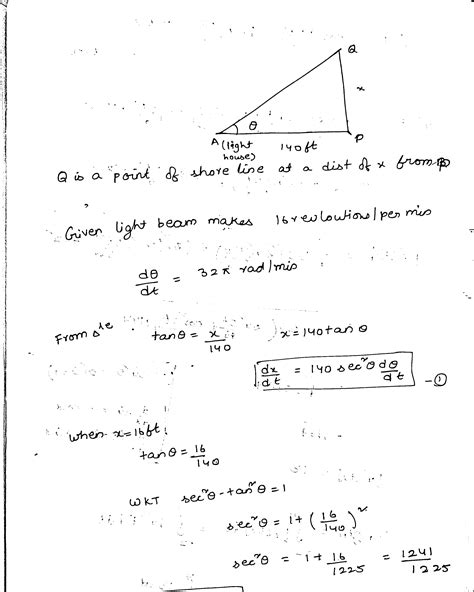 Q
x
θ
A (light house)
140ft
P
Q is a point of shore line at a dist of x from P
Given light beam makes 16 revloutions/per min
dθ/dt = 32π rad/min
From Δle tanθ = x/140, x = 140 tan θ
dx/dt = 140 sec²θ dθ/dt —①
when x=16ft;
tanθ = 16/140
WKT sec²θ - tan²θ = 1
sec²θ = 1 + (16/140)²
sec²θ = 1 + 16/1225 = 1241/1225